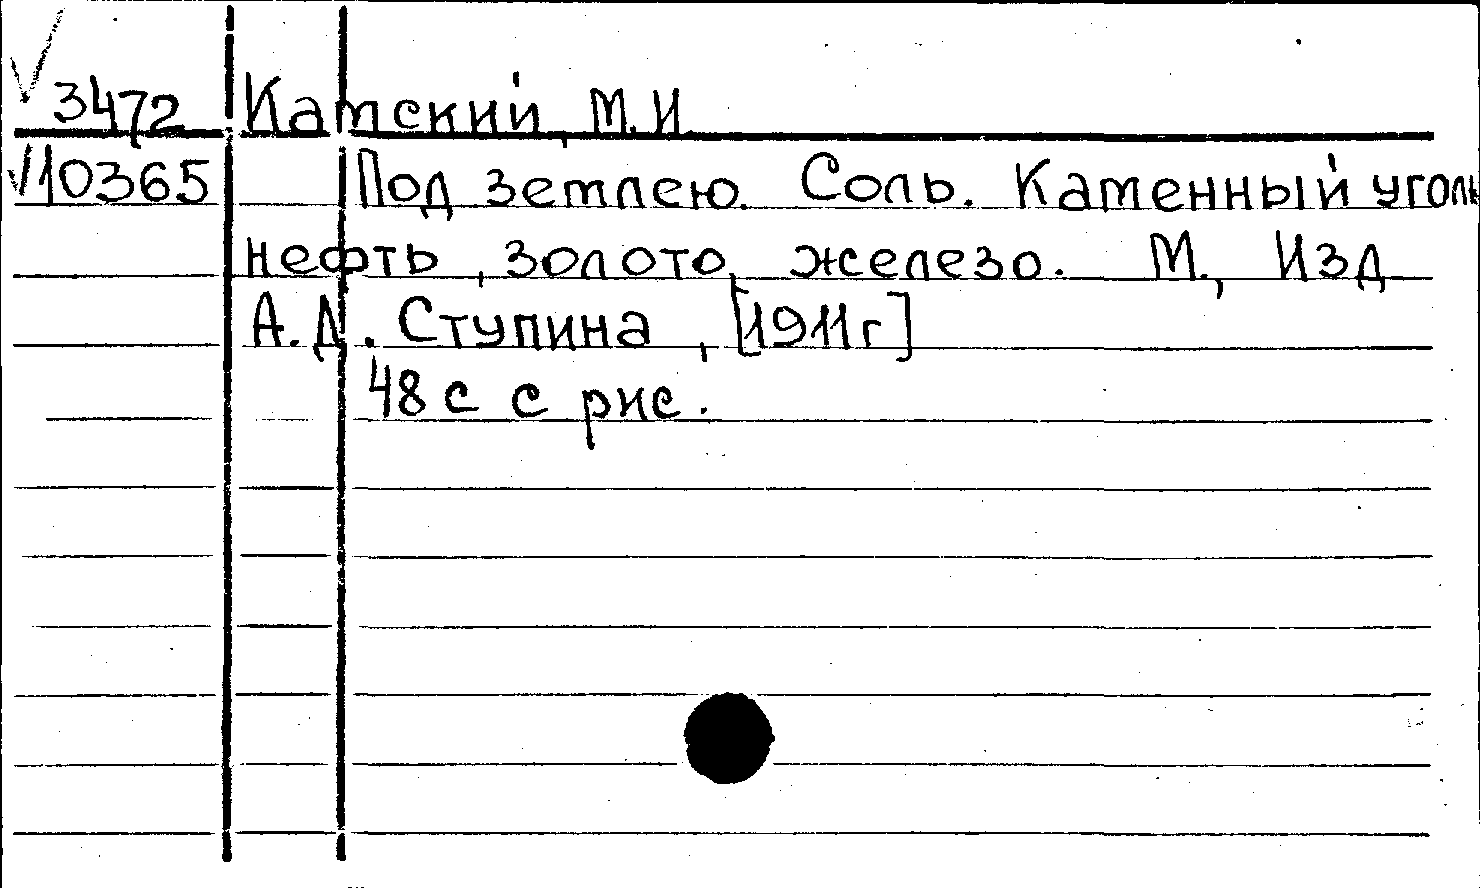 3472 Камский, М.И
10365 Под землею. Соль. Каменный уголь
нефть, золото, железо. М., Изд
А.Д. Ступина, [1911г]
48 с с рис.